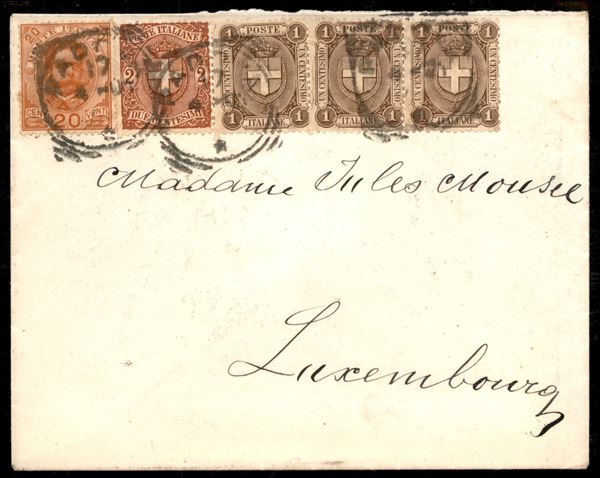 20 20
CENT VENTI
20
POSTE ITALIANE
2 2
DUE CENTESIMI
1 POSTE 1
UN CENTESIMO
UN CENTESIMO
1 ITALIANE 1
1 POSTE 1
UN CENTESIMO
UN CENTESIMO
1 ITALIANE 1
1 POSTE 1
UN CENTESIMO
UN CENTESIMO
1 ITALIANE 1
Madame Jules Mousel
Luxembourg